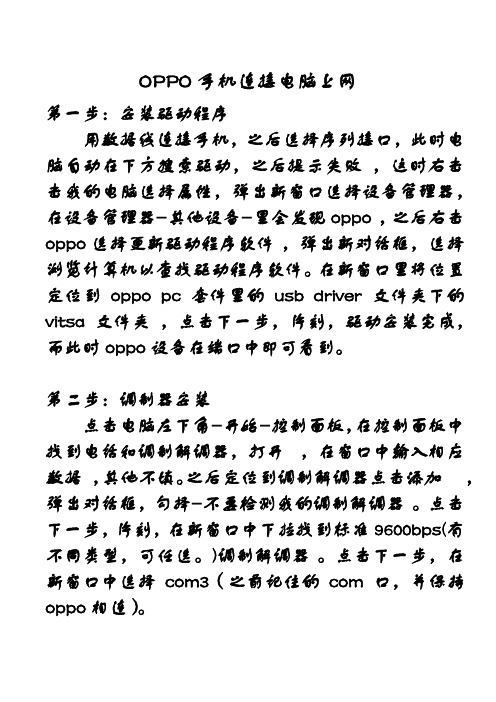 OPPO手机连接电脑上网
第一步：安装驱动程序
用数据线连接手机，之后选择序列接口，此时电
脑自动在下方搜索驱动，之后提示失败 ，这时右击
击我的电脑选择属性，弹出新窗口选择设备管理器，
在设备管理器-其他设备-里会发现oppo，之后右击
oppo选择更新驱动程序软件 ，弹出新对话框，选择
浏览计算机以查找驱动程序软件。在新窗口里将位置
定位到 oppo pc 套件里的 usb driver 文件夹下的
vitsa 文件夹 ，点击下一步，阵刻，驱动安装完成，
而此时oppo设备在端口中即可看到。
第二步：调制器安装
点击电脑左下角-开始-控制面板，在控制面板中
找到电话和调制解调器，打开 ，在窗口中输入相应
数据 ，其他不填。之后定位到调制解调器点击添加 ，
弹出对话框，勾择-不要检测我的调制解调器 。点击
下一步，阵刻，在新窗口中下拉找到标准9600bps(有
不同类型，可任选。)调制解调器 。点击下一步，在
新窗口中选择 com3（之前记住的 com 口，并保持
oppo相连）。